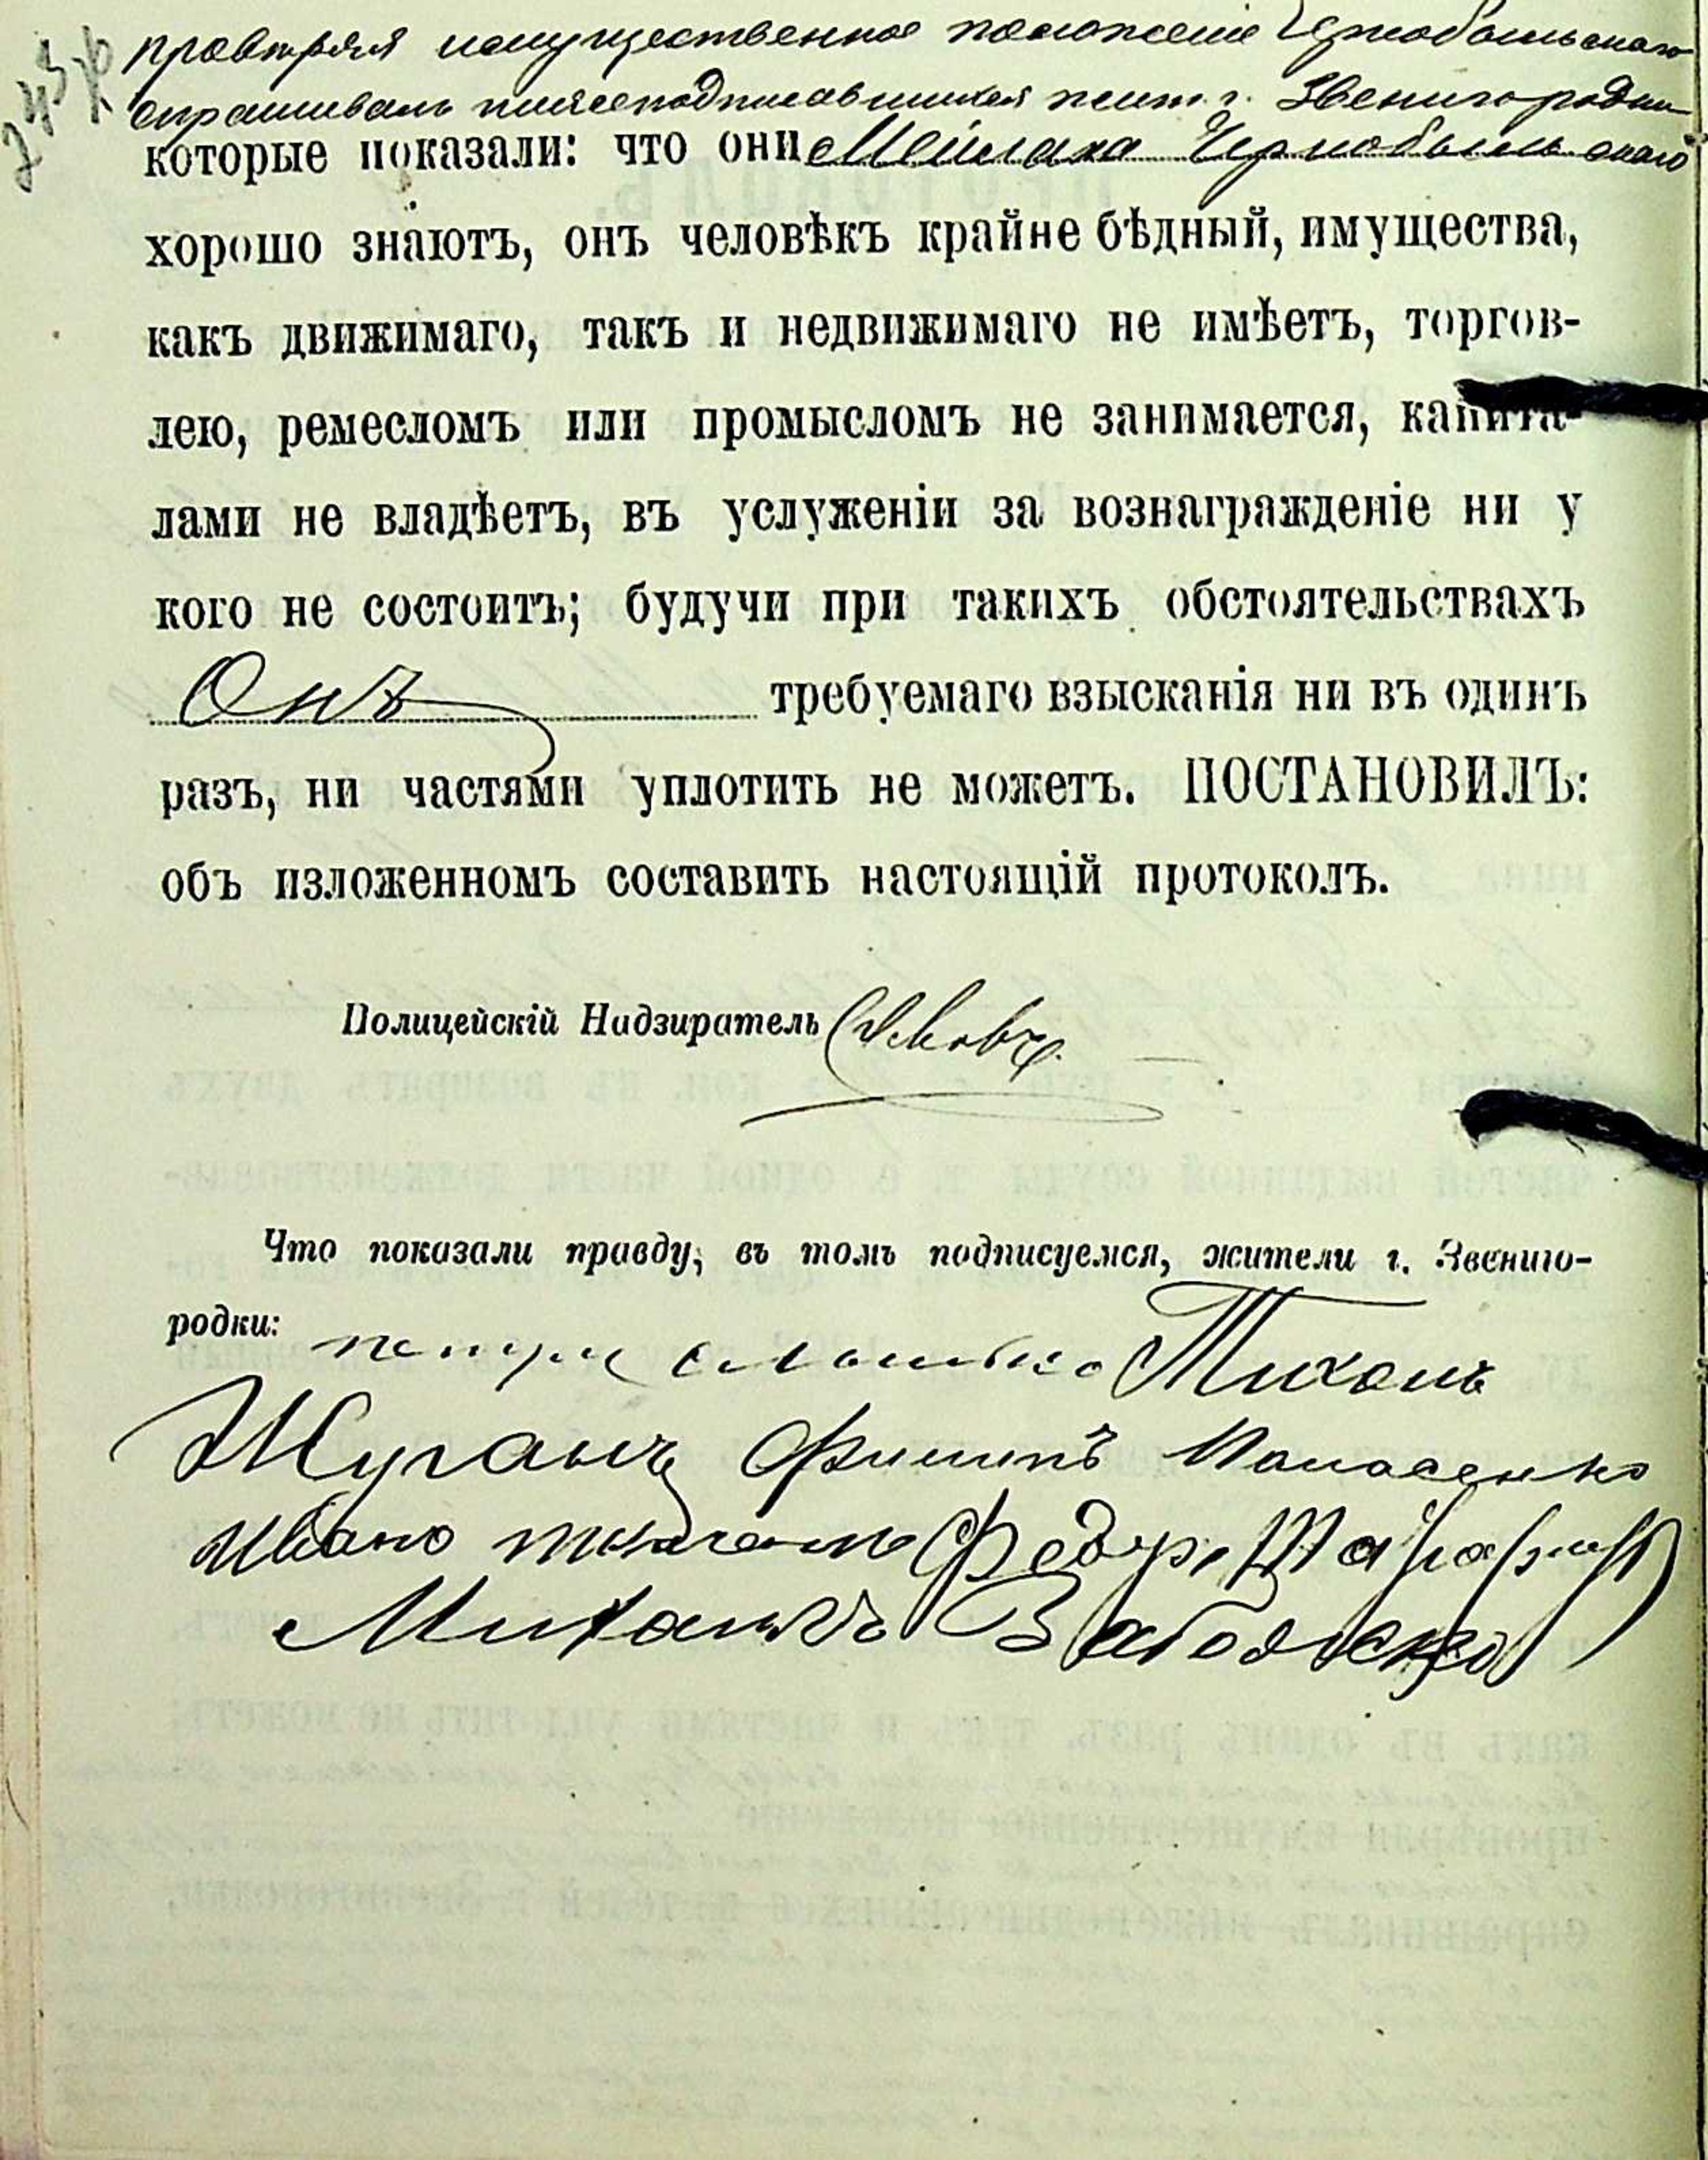 провѣряя имущественное положеніе Чернобыльскаго
спрашивалъ нижеподписавшихся жит. г. Звенигородки
которые показали: что они Мейлаха Чернобыльскаго
хорошо знаютъ, онъ человѣкъ крайне бѣдный, имущества,
какъ движимаго, такъ и недвижимаго не имѣетъ, торгов-
лею, ремесломъ или промысломъ не занимается, капита-
лами не владѣетъ, въ услуженіи за вознагражденіе ни у
кого не состоитъ; будучи при такихъ обстоятельствахъ
Онъ требуемаго взысканія ни въ одинъ
разъ, ни частями уплотить не можетъ. ПОСТАНОВИЛЪ:
объ изложенномъ составить настоящій протоколъ.
Полицейскій Надзиратель
Что показали правду, въ томъ подписуемся, жители г. Звениго-
родки: Тихонъ
Жуганъ Филипъ Панасенко
Ивано Федор
Михаилъ Забоянско